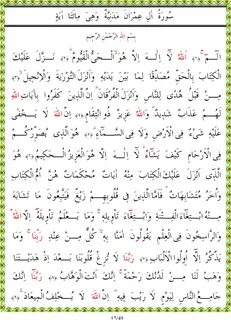 سُورَةُ اٰلِ عِمْرَانَ مَدَنِيَّةٌ وَهِيَ مِائَتَا اٰيَةٍ
بِسْمِ اللهِ الرَّحْمٰنِ الرَّحِيمِ
الٓمٓ ﴿١﴾ اَللهُ لَٓا اِلٰهَ اِلَّا هُوَ الْحَيُّ الْقَيُّومُ ﴿٢﴾ نَزَّلَ عَلَيْكَ
الْكِتَابَ بِالْحَقِّ مُصَدِّقًا لِمَا بَيْنَ يَدَيْهِ وَاَنْزَلَ التَّوْرٰيةَ وَالْاِنْجِيلَ ﴿٣﴾
مِنْ قَبْلُ هُدًى لِلنَّاسِ وَاَنْزَلَ الْفُرْقَانَ اِنَّ الَّذِينَ كَفَرُوا بِاٰيَاتِ اللهِ
لَهُمْ عَذَابٌ شَدِيدٌ وَاللهُ عَزِيزٌ ذُو انْتِقَامٍ ﴿٤﴾ اِنَّ اللهَ لَا يَخْفٰى
عَلَيْهِ شَيْءٌ فِي الْاَرْضِ وَلَا فِي السَّمَاءِ ﴿٥﴾ هُوَ الَّذِي يُصَوِّرُكُمْ
فِي الْاَرْحَامِ كَيْفَ يَشَاءُ لَٓا اِلٰهَ اِلَّا هُوَ الْعَزِيزُ الْحَكِيمُ ﴿٦﴾ هُوَ الَّذِي
اَنْزَلَ عَلَيْكَ الْكِتَابَ مِنْهُ اٰيَاتٌ مُحْكَمَاتٌ هُنَّ اُمُّ الْكِتَابِ
وَاُخَرُ مُتَشَابِهَاتٌ فَاَمَّا الَّذِينَ فِي قُلُوبِهِمْ زَيْغٌ فَيَتَّبِعُونَ مَا تَشَابَهَ
مِنْهُ ابْتِغَاءَ الْفِتْنَةِ وَابْتِغَاءَ تَأْوِيلِهِ وَمَا يَعْلَمُ تَأْوِيلَهُ اِلَّا اللهُ
وَالرَّاسِخُونَ فِي الْعِلْمِ يَقُولُونَ اٰمَنَّا بِهِ كُلٌّ مِنْ عِنْدِ رَبِّنَا وَمَا
يَذَّكَّرُ اِلَّٓا اُولُوا الْاَلْبَابِ ﴿٧﴾ رَبَّنَا لَا تُزِغْ قُلُوبَنَا بَعْدَ اِذْ هَدَيْتَنَا
وَهَبْ لَنَا مِنْ لَدُنْكَ رَحْمَةً اِنَّكَ اَنْتَ الْوَهَّابُ ﴿٨﴾ رَبَّنَا اِنَّكَ
جَامِعُ النَّاسِ لِيَوْمٍ لَا رَيْبَ فِيهِ اِنَّ اللهَ لَا يُخْلِفُ الْمِيعَادَ ﴿٩﴾